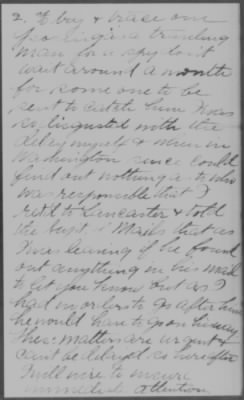 2. & try & trace one
for a spy don't
wait around a month
for some one to be
sent to catch him I was
so disgusted with the
delay myself & when in
Washington since could
find out nothing as to who
was responsible that I
retd to Lancaster & told
the Supt. Mails that as
I was leaving if he found
out anything in his mail
to let you know but as I
had in orders to go after him
he would have to go on his way
These matters are urgent &
can't be delayed so hereafter
I will wire to insure
immediate attention